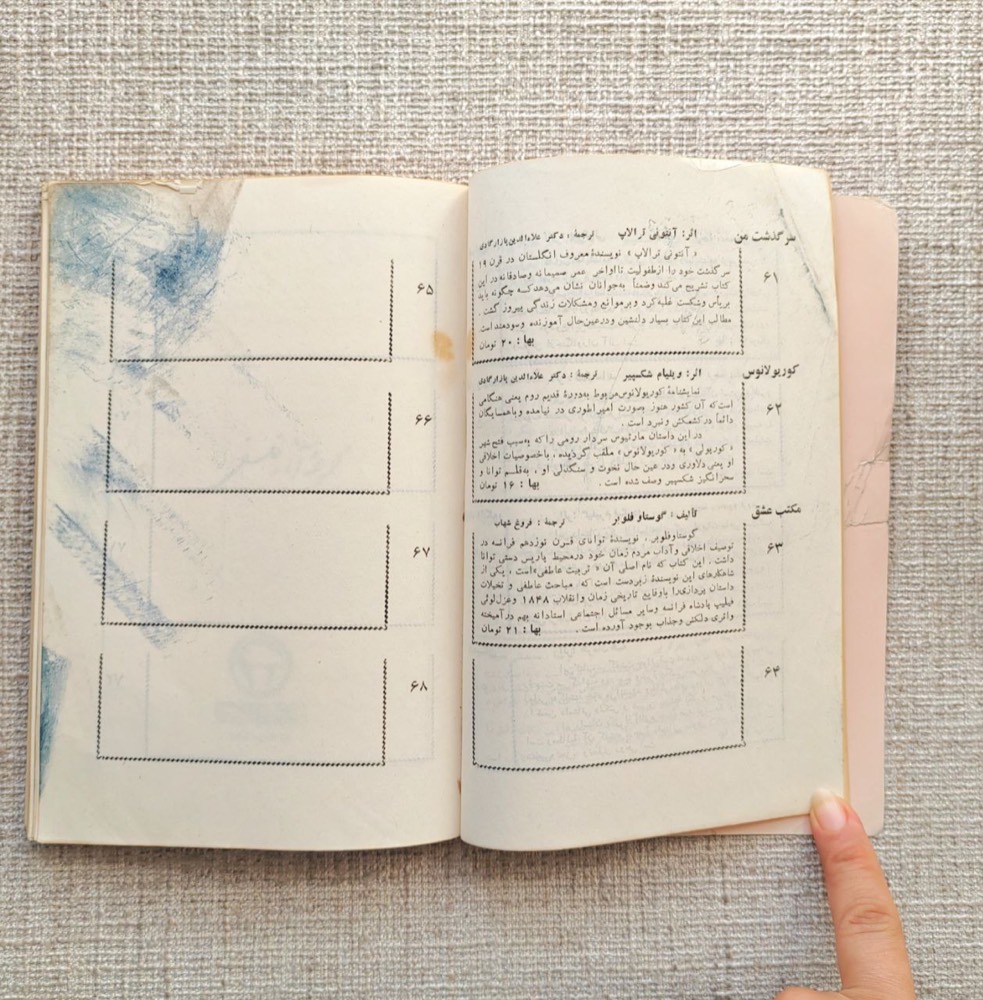 سرگذشت من
اثر: آنتونی ترالاپ ترجمهٔ: دکتر علاءالدین پازارگادی
۶۱
«آنتونی ترالاپ» نویسندهٔ معروف انگلستان در قرن ۱۹
سرگذشت خود را ازطفولیت تااواخر عمر صمیمانه وصادقانه در این
کتاب تشریح می‌کند وضمناً به‌جوانان نشان می‌دهدکه چگونه باید
بریأس وشکست غلبه‌کرد و برموانع ومشکلات زندگی پیروز گشت.
مطالب این‌کتاب بسیار دلنشین ودرعین‌حال آموزنده وسودمنداست.
بها: ۲۰ تومان
کوریولانوس
اثر: ویلیام شکسپیر ترجمهٔ: دکتر علاءالدین پازارگادی
۶۲
نمایشنامهٔ کوریولانوس‌مربوط به‌دورهٔ قدیم روم یعنی هنگامی
است‌که آن کشور هنوز بصورت امپراطوری در نیامده وباهمسایگان
دائماً درکشمکش ونبرد است.
در این داستان مارثیوس سردار رومی راکه به‌سبب فتح‌شهر
«کوریولی» به «کوریولانوس» ملقب گردیده، باخصوصیات اخلاقی
او یعنی دلاوری ودر عین حال نخوت و سنگدلی او، به‌قلم توانا و
سحرانگیز شکسپیر وصف شده است.
بها: ۱۶ تومان
مکتب عشق
تألیف: گوستاو فلوبر ترجمهٔ: فروغ شهاب
۶۳
گوستاوفلوبر، نویسندهٔ توانای قرن نوزدهم فرانسه در
توصیف اخلاقی وآداب مردم زمان خود درمحیط پاریس دستی توانا
داشت. این کتاب که نام اصلی آن «تربیت عاطفی»است، یکی از
شاهکارهای این نویسندهٔ زبردست است که، مباحث عاطفی و تخیلات
داستان پردازی‌را باوقایع تاریخی زمان وانقلاب ۱۸۴۸ وعزل‌لوئی
فیلیپ پادشاه فرانسه وسایر مسائل اجتماعی استادانه بهم درآمیخته
واثری دلکش وجذاب بوجود آورده است.
بها: ۲۱ تومان
۶۴
۶۵
۶۶
۶۷
۶۸